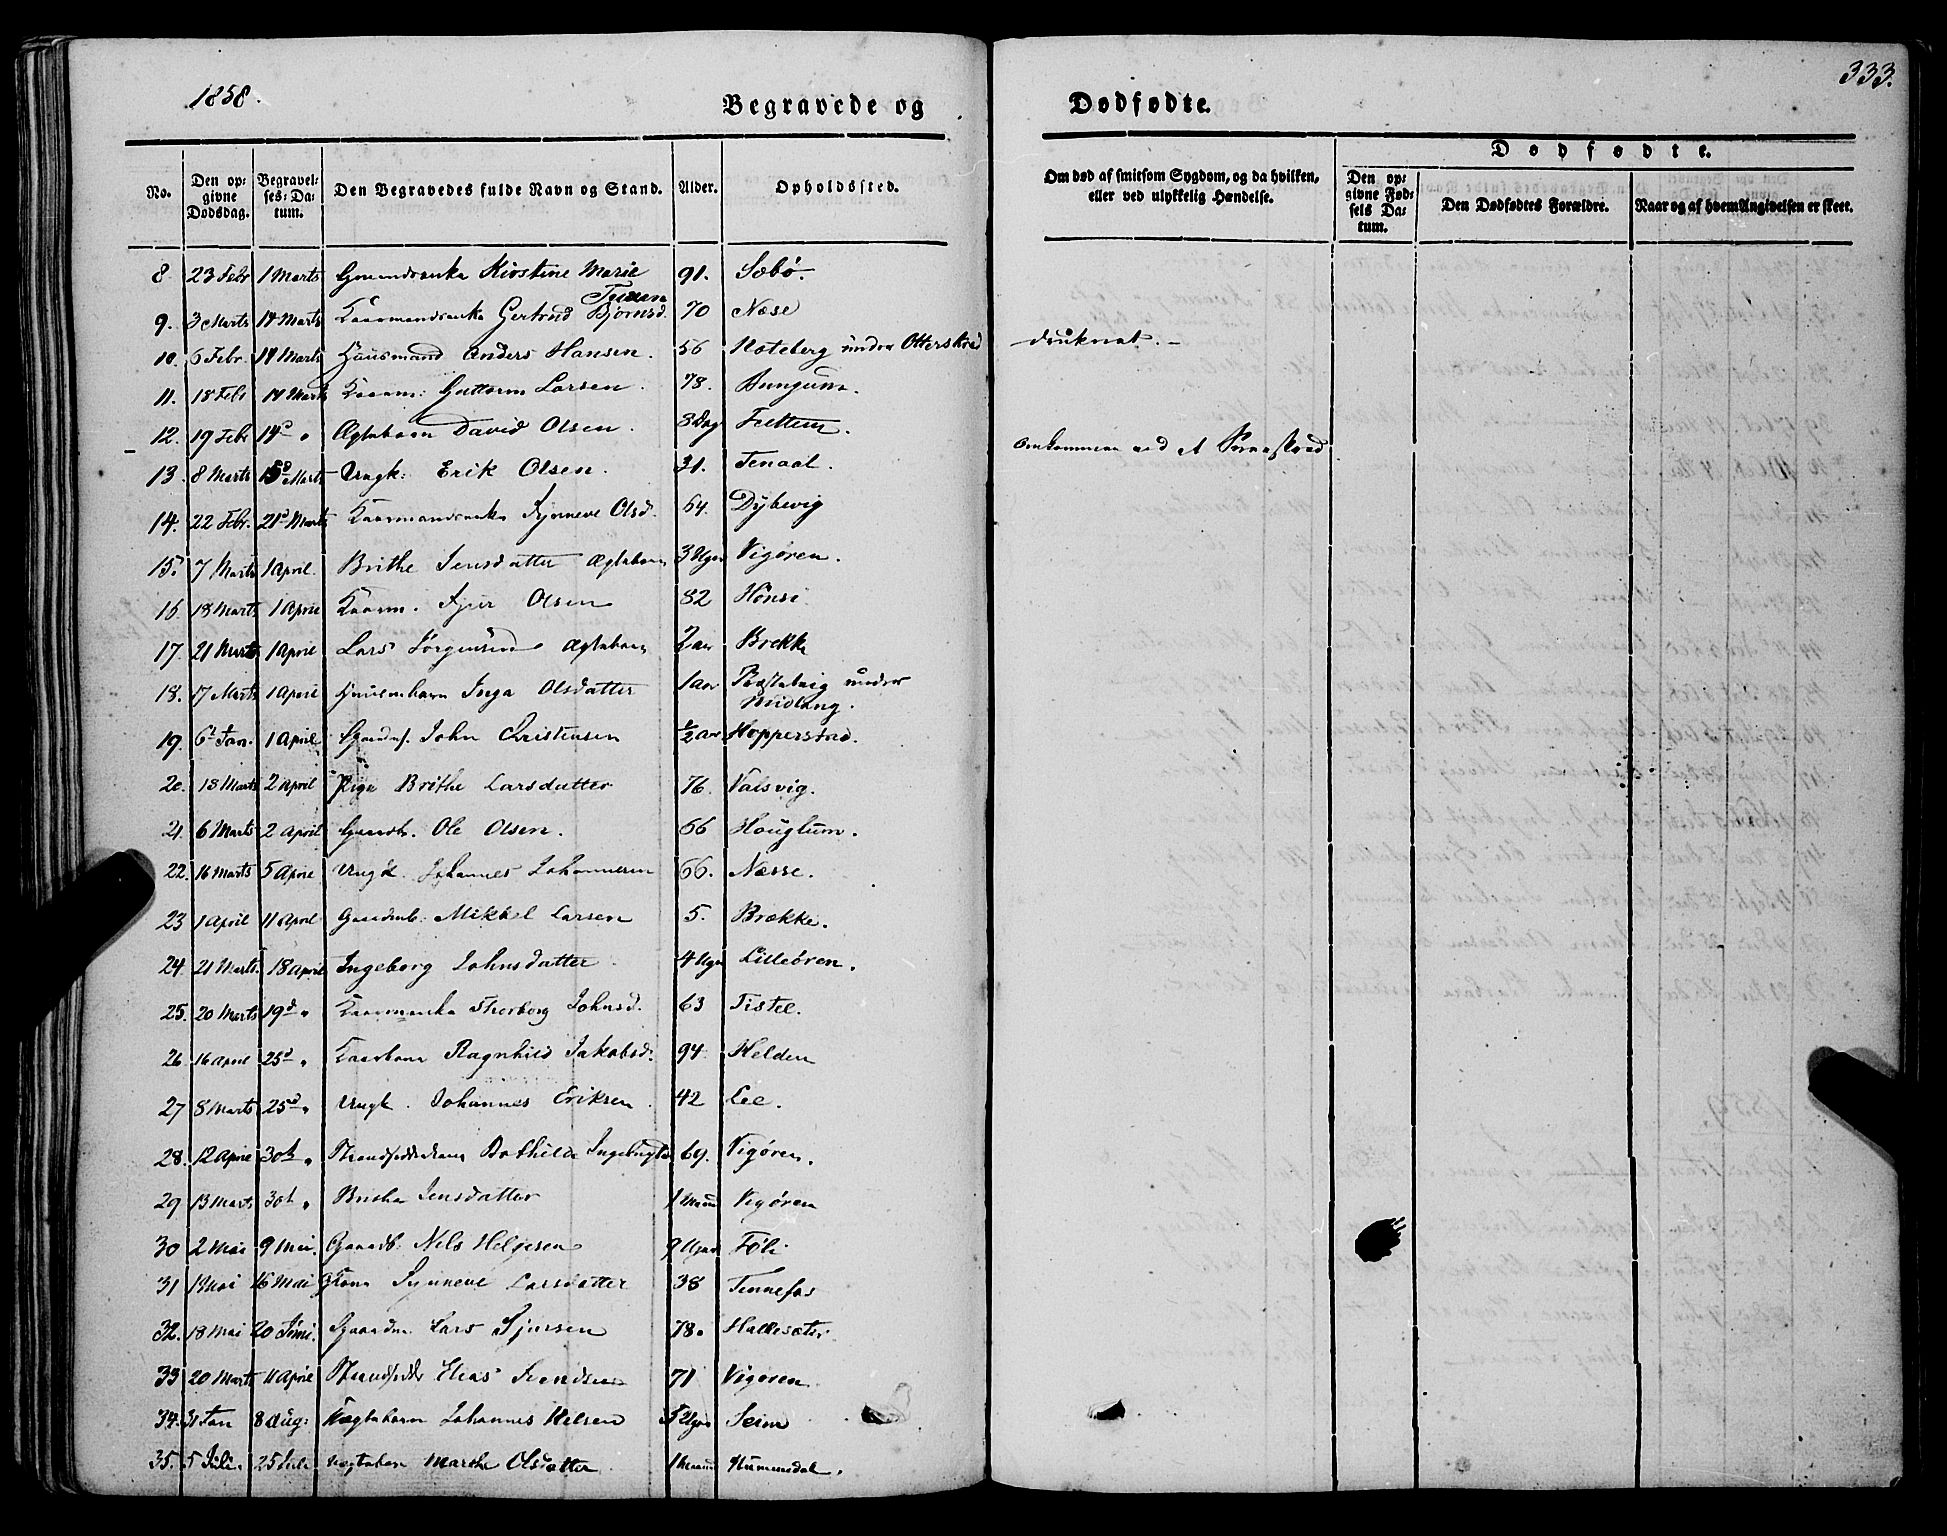 1858.
333.
Begravede og Dødfødte.
No.
Den opgivne Dødsdag.
Begravelses-Datum.
Den Begravedes fulde Navn og Stand.
Alder.
Opholdssted.
Om død af smitsom Sygdom, og da hvilken, eller ved ulykkelig Hændelse.
Dødfødte.
Den opgivne Fødsels Datum.
Den Dødfødtes Forældre.
Naar og af hvem Angivelsen er skeet.
8. 23 Febr 1 Marts Kirstine Marie 91. Sæbø.
9. 3 Marts 14 Marts Gertrud Bjørnsd. 70 Næse
10. 6 Febr. 14 Marts Huusmand Anders Hansen. 56 Noteberg under Otterskred druknet. -
11. 18 Feb 14 Marts Kaarm: Guttorm Larsen. 78.
12. 19 Febr 14d " Ægtebarn David Olsen. 3 Dag
13. 8 Marts Marts Ungk: Erik Olsen. 31. Tenaal. omkommen ved et Sneeskred
14. 22 Febr. 21d Marts Synneve Olsd. 64. Dybevig
15. 7 Marts 1 April. Brithe Jensdatter Ægtebarn 3 Uger Vigøren.
16 18 Marts 1 April Kaarm. Sjur Olsen 82 Hønsi
17. 21 Marts 1 April Lars Jørgensen Ægtebarn 2 aar Brekke
18. 17 Marts 1 April Inga Olsdatter 1 aar under
19. 6 Jan. 1 April John Christensen ½ aar Hopperstad.
20. 18 Marts 2 April Pige Brithe Larsdatter 76. Valsvig.
21 6 Marts 2 April Ole Olsen. 66 Houglum.
22. 16 Marts 5 April Ungk. Johannes Johannesen 66. Næsse.
23 1 April 11 April Mikkel Larsen 5. Brække.
24. 21 Marts. 18 April Ingeborg Johnsdatter 4 Uger Lilleøren.
25. 20 Marts 19d " Thorborg Johnsd. 63 Tistel.
26. 16 April 25d " Ragnhild Jakobsd. 94. Helden
27 8 Marts 25d " Ungk. Johannes Eriksen. 42 Lee.
28. 12 April 30te " Bothilde 69. Vigøren.
29 13 Marts 30t " Jensdatter 1 Maaned Vigøren
30 2 Mai 9 Mai. Gaardb. Nels Helgesen 9 Uger Føli
31 1 Mai 16 Mai Kone Synneve Larsdatter 38 Tennefos
32. 18 Mai 20 Juni. Gaardm. Lars Sjursen 78. Hallesæter
33 20 Marts 11 April Strandsidder Elias Svendsen 71 Vigøren
34. 31 Jan 8 Aug: Ægtebarn Johannes Nelsen 5 Uger Seim
35. 5 Juli. 25 Juli Ægtebarn Marthe Olsdatter 1 Maaned Hummedal.